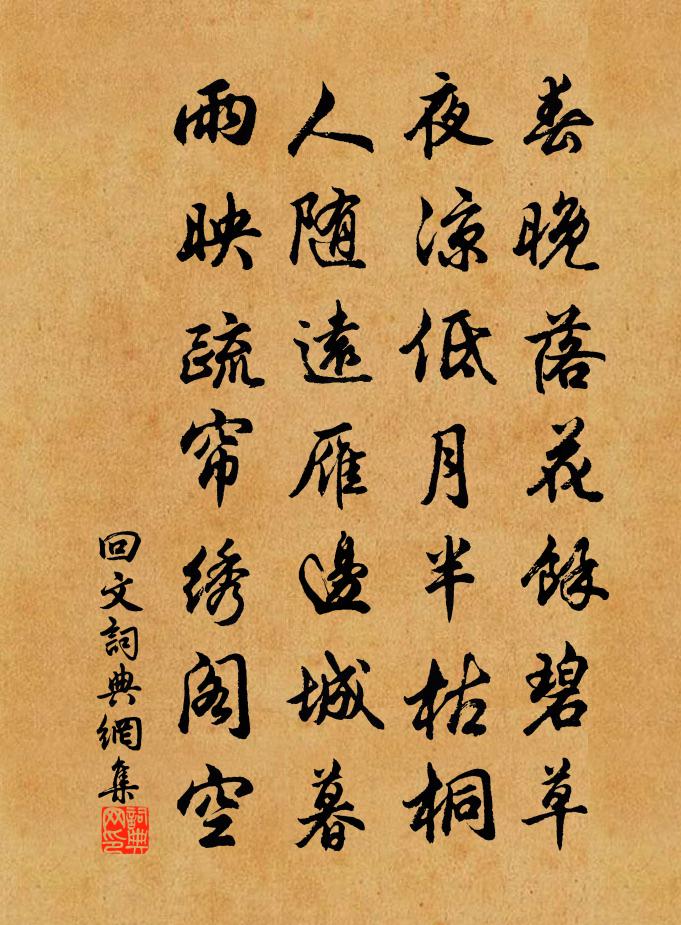 春晚落花餘碧草
夜涼低月半枯桐
人随遠雁邊城暮
雨映疏帘绣阁空
回文詞典網集
詞典网印